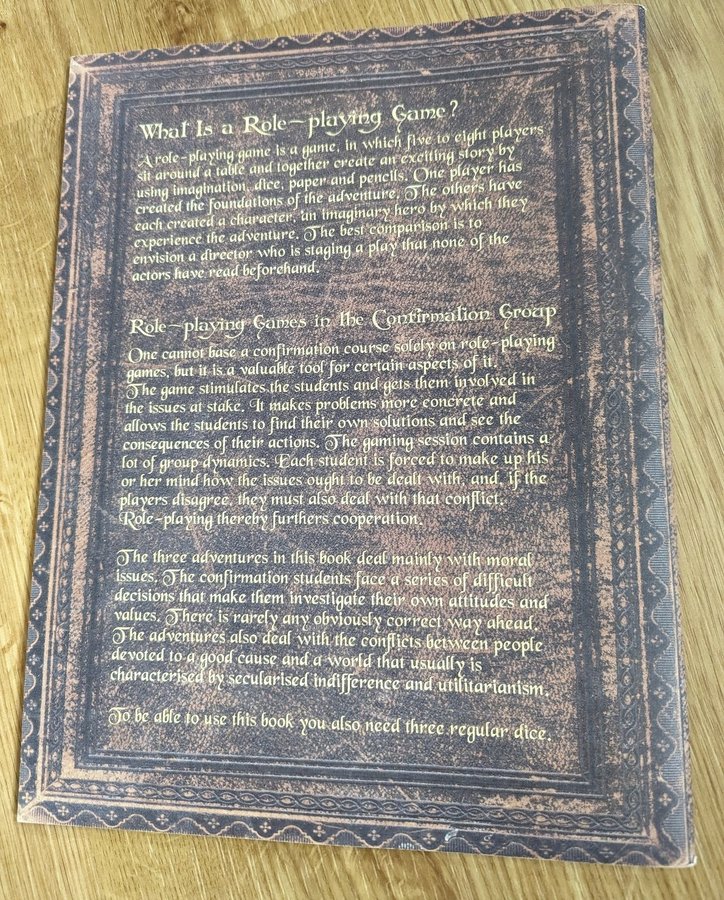 What Is a Role-playing Game?
A role-playing game is a game, in which five to eight players
sit around a table and together create an exciting story by
using imagination, dice, paper and pencils. One player has
created the foundations of the adventure. The others have
each created a character, an imaginary hero by which they
experience the adventure. The best comparison is to
envision a director who is staging a play that none of the
actors have read beforehand.
Role-playing Games in the Confirmation Group
One cannot base a confirmation course solely on role-playing
games, but it is a valuable tool for certain aspects of it.
The game stimulates the students and gets them involved in
the issues at stake. It makes problems more concrete and
allows the students to find their own solutions and see the
consequences of their actions. The gaming session contains a
lot of group dynamics. Each student is forced to make up his
or her mind how the issues ought to be dealt with, and, if the
players disagree, they must also deal with that conflict.
Role-playing thereby furthers cooperation.
The three adventures in this book deal mainly with moral
issues. The confirmation students face a series of difficult
decisions that make them investigate their own attitudes and
values. There is rarely any obviously correct way ahead.
The adventures also deal with the conflicts between people
devoted to a good cause and a world that usually is
characterised by secularised indifference and utilitarianism.
To be able to use this book you also need three regular dice.